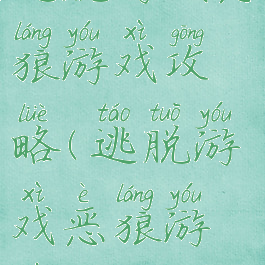 láng yóu xì gōng
狼游戏攻
lüè táo tuō yóu
略(逃脱游
xì è láng yóu
戏恶狼游